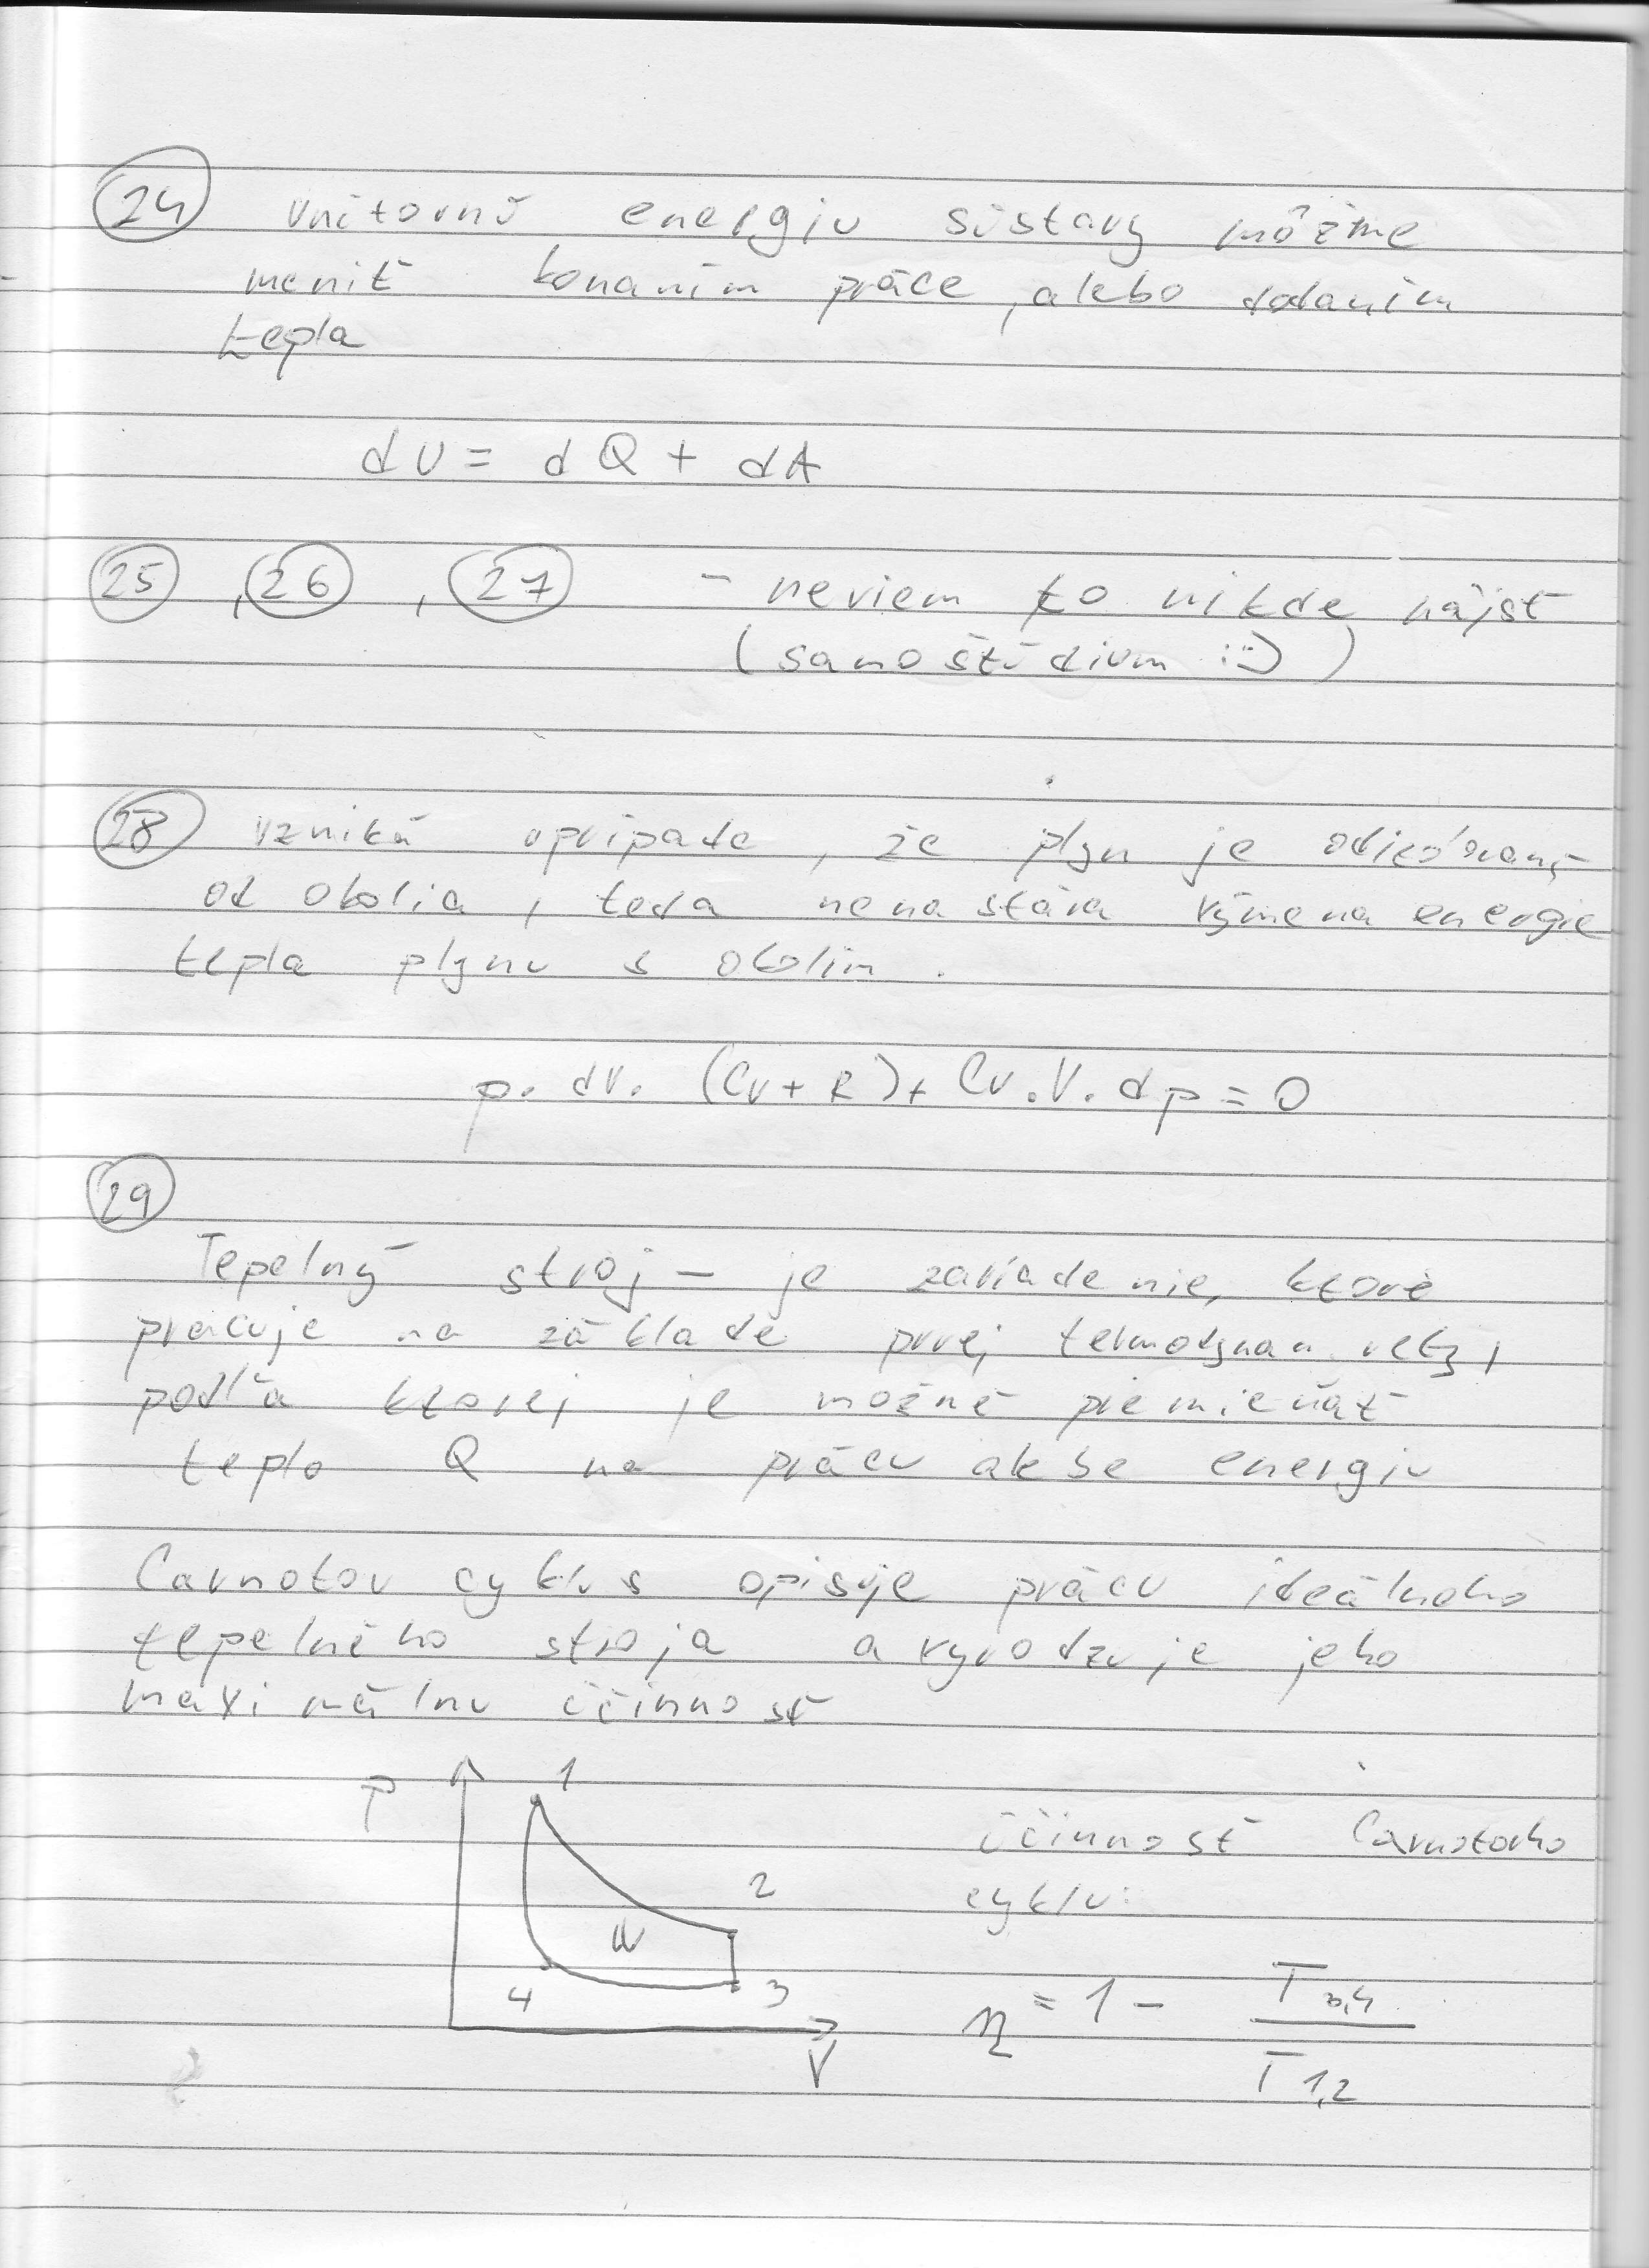 24 vnitornú energiu sústavy môžme
meniť konaním práce, alebo dodaním
tepla
dU = dQ + dA
25, 26, 27 - neviem to nikde nájsť
(samoštúdium :-))
28 vzniká vprípade, že plyn je
od okolia, teda nenastáva výmena energie
tepla plynu s okolím.
p. dV. (Cv + R) + Cv. V. dp = 0
29
Tepelný stroj - je zariadenie, ktoré
pracuje na základe prvej termodynam. vety,
podľa ktorej je možné premieňať
teplo Q na prácu energiu
Carnotov cyklus opisuje prácu ideálneho
tepelného stroja a vyvodzuje jeho
maximálnu účinnosť
P 1
2
W
4 3
V
účinnosť Carnotovho
cyklu:
η = 1 - T 3,4 / T 1,2